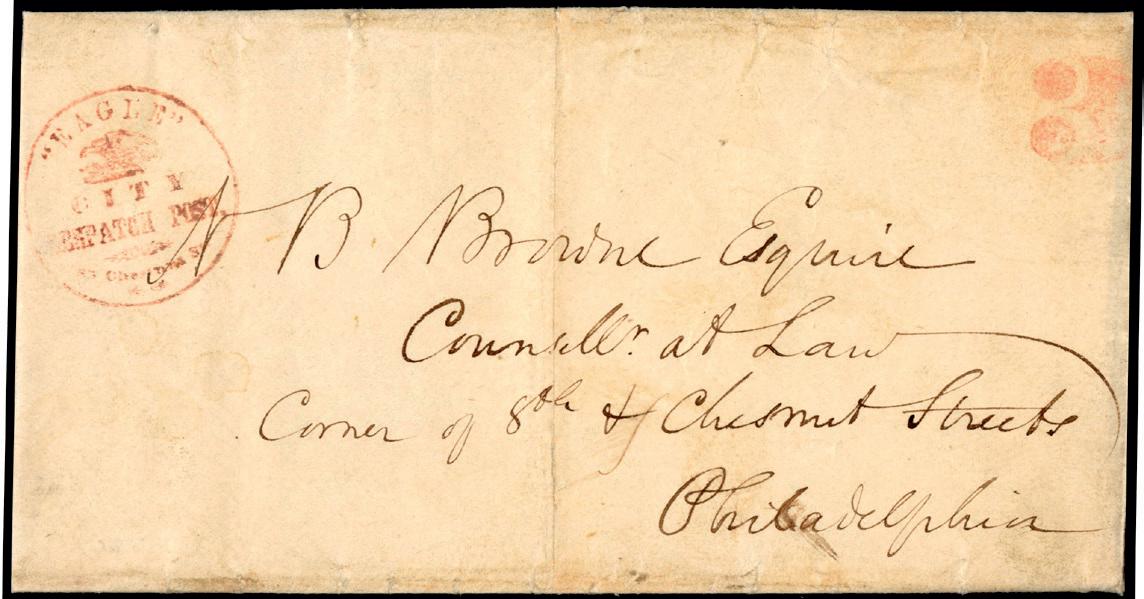 "EAGLE"
CITY
DESPATCH POST,
N B Browne Esquire
Counsellr. at Law
Corner of 8th & Chesnut Streets
Philadelphia